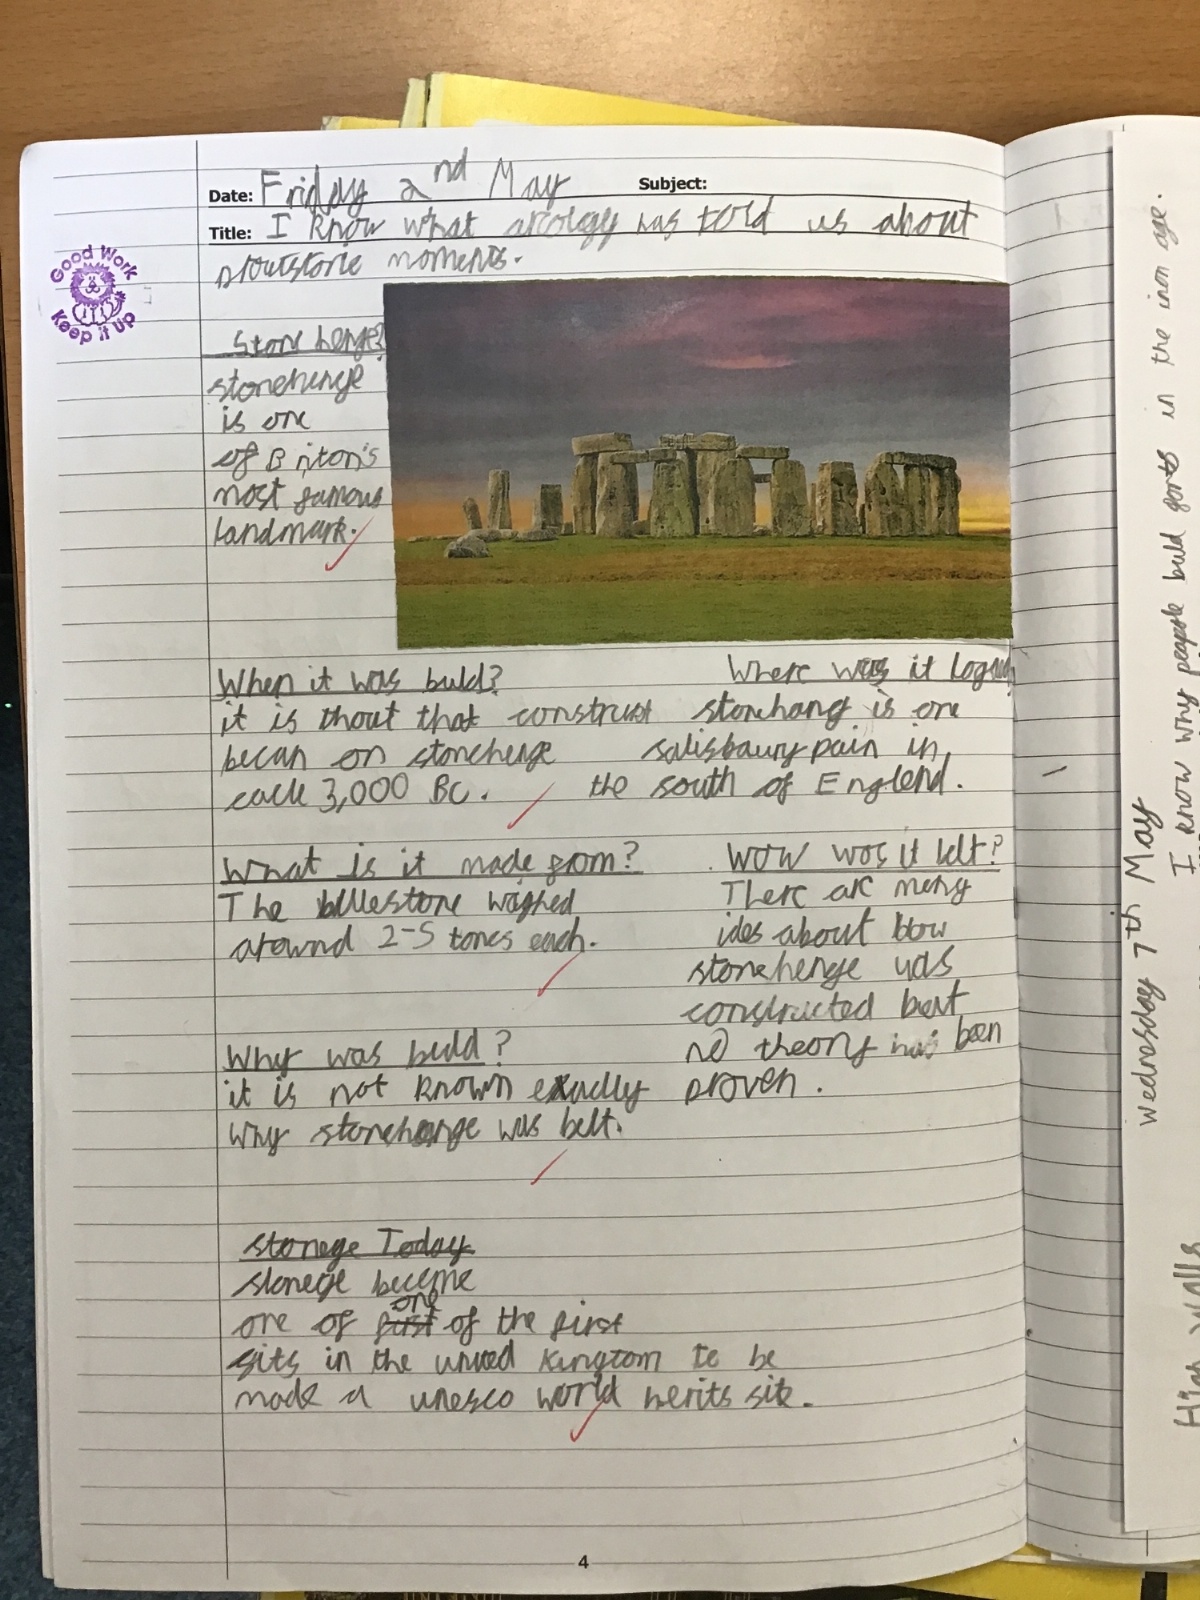 Date: Friday 2nd May Subject:
Title: I know what arcology has told us about
moments.
Good Work
Keep it up
Stone henge?
stonehenge
is one
of Briton's
most famous
landmark.
When it was buld?
it is thout that construst
becan on stonehenge
3,000 BC.
Where was it
stonehang is one
salisbaury pain in
the south of Englend.
What is it made from?
The bluestone wighed
around 2-5 tones each.
WOW was it belt?
There are meny
ides about how
stonehenge was
constructed but
no theory has been
proven.
Why was budd?
it is not known exactly
why stonehenge was belt.
stonege Today
stonege become
one
one of first of the first
sits in the united Kingtom to be
made a unesco world herits site.
4
I know why people buld forts in the iron age.
Wednesday 7th May
High walls